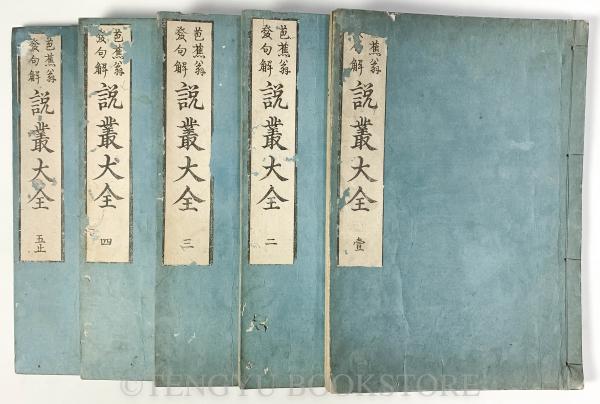 蕉翁
發句解
説叢大全
壹
芭蕉翁
發句解
説叢大全
二
芭蕉翁
發句解
説叢大全
三
芭蕉翁
發句解
説叢大全
四
芭蕉翁
發句解
説叢大全
五止
©TENGYU BOOKSTORE